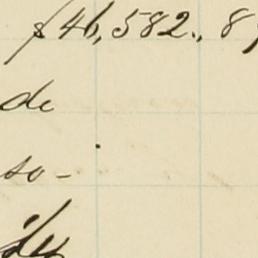 $46,582., 8
de
so-